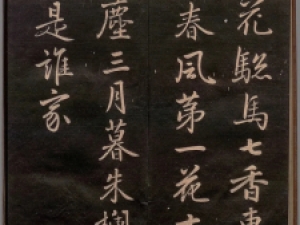 花驄馬七香車
春風第一花十
塵三月暮朱
是誰家